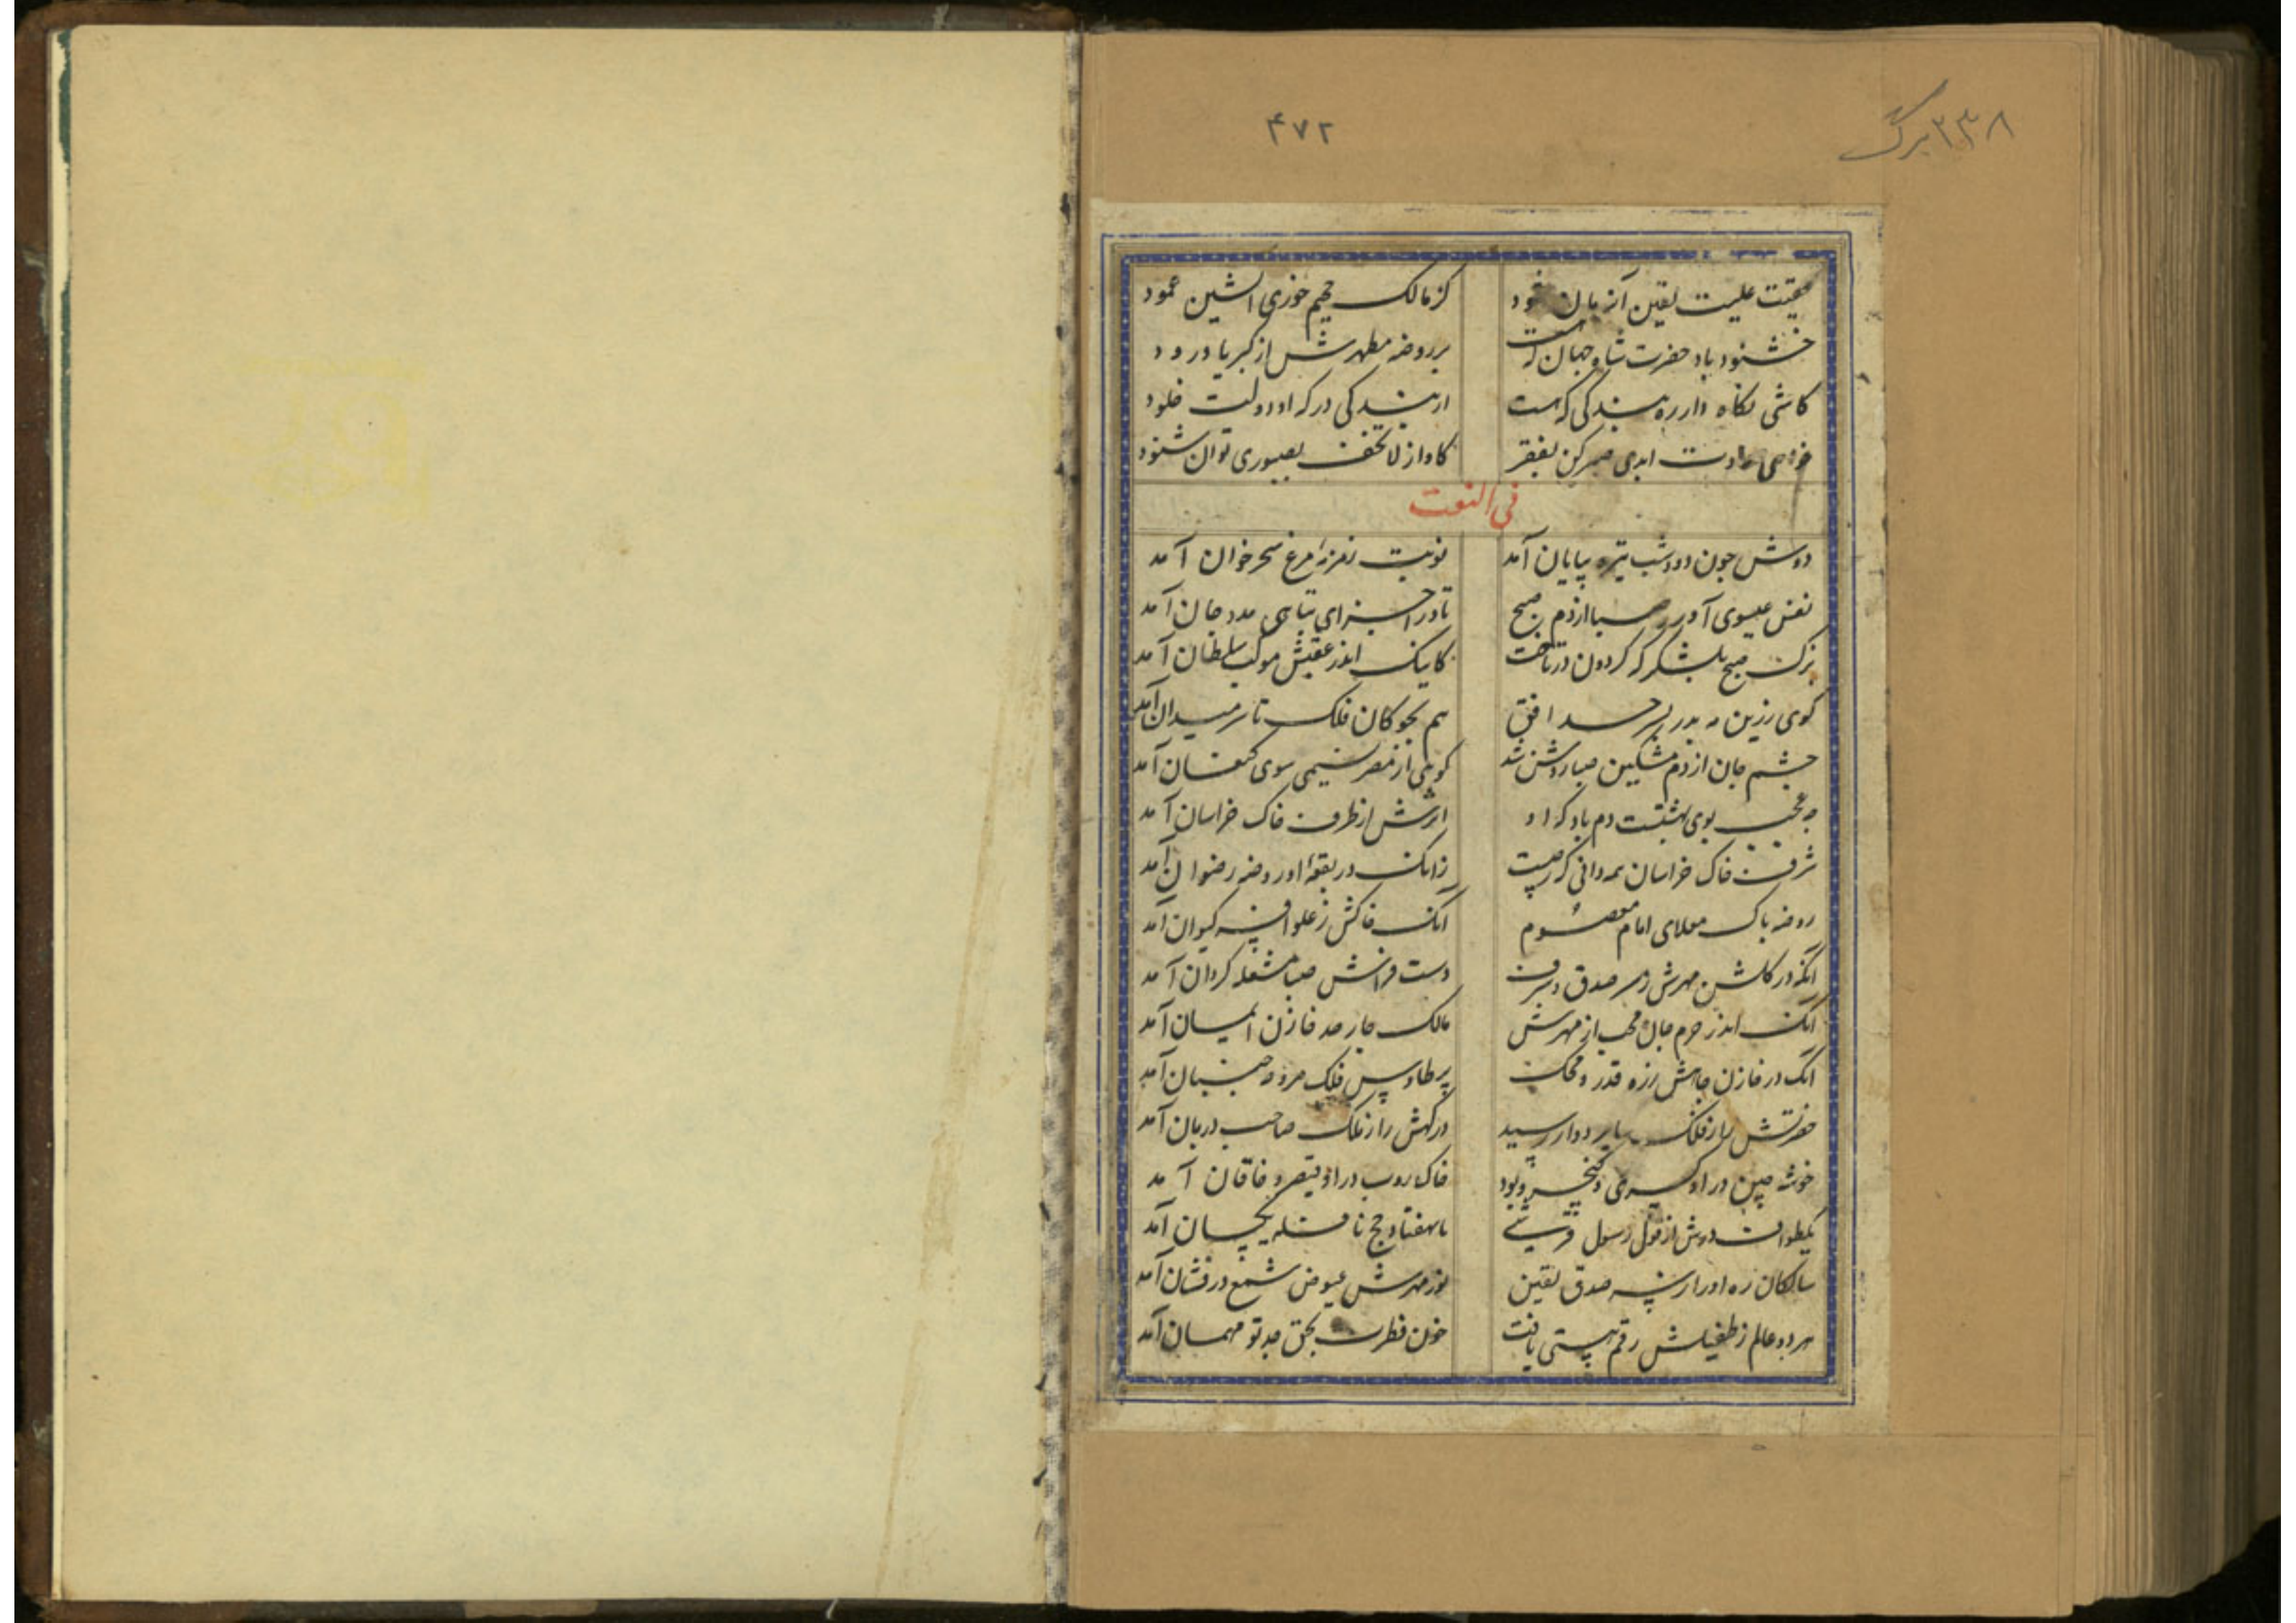 ۲۳۸ برگ
۴۷۲
علیست یقین آنزمان کز مالک جحیم خوری آتشین عمود
خشنود باد حضرت شاه جهان که هست بر روضه مطهرش از کبریا درود
کاشی نکاه دار ره بندکی که هست از بندکی درکه او دولت خلود
ابدی صبر کن بفقر کاواز لا تخف بصبوری توان شنود
فی النعت
دوش چون دود شب تیره بپایان آمد نوبت زمزمهٔ مرغ سحرخوان آمد
نفس عیسوی آورد صبا از دم صبح تا در اجزای نباتی مدد جان آمد
ترک صبح بلشکر که کردون در تاخت کاینک اندر عقبش موکب سلطان آمد
کوی زرین مه بدر بسرحد افق هم بچوکان فلک تا سر میدان آمد
چشم جان از دم مشکین صبا روشن شد کوهی از مصر نسیمی سوی کنعان آمد
چه عجب بوی بهشتست دم باد که او اثرش از طرف خاک خراسان آمد
شرف خاک خراسان همه دانی که ز چیست زانک در بقعهٔ او روضه رضوان آمد
روضه پاک معلای امام معصوم آنک خاکش ز علو افسر کیوان آمد
آنکه در کلشن مهرش ز سر صدق و شرف دست فراش صبا مشغله کردان آمد
آنک اندر حرم جان محب از مهرش مالک چار حد خازن ایمان آمد
آنک در خازن جاهش ز ره قدر و محک پر طاوس فلک مروحه جنبان آمد
حضرتش را ز فلک پرده دار رسید درکهش را ز ملک صاحب دربان آمد
خوشه چین در او کسری و کیخسرو بود خاک روب در او قیصر و خاقان آمد
یکطواف درش از قول رسول قرشی با بهفتاد حج نافله یکسان آمد
سالکان ره او را ز سر صدق یقین نور مهرش عوض شمع درفشان آمد
هر دو عالم ز طفیلش رقم هستی یافت خوان فطرت بحق جد تو مهمان آمد